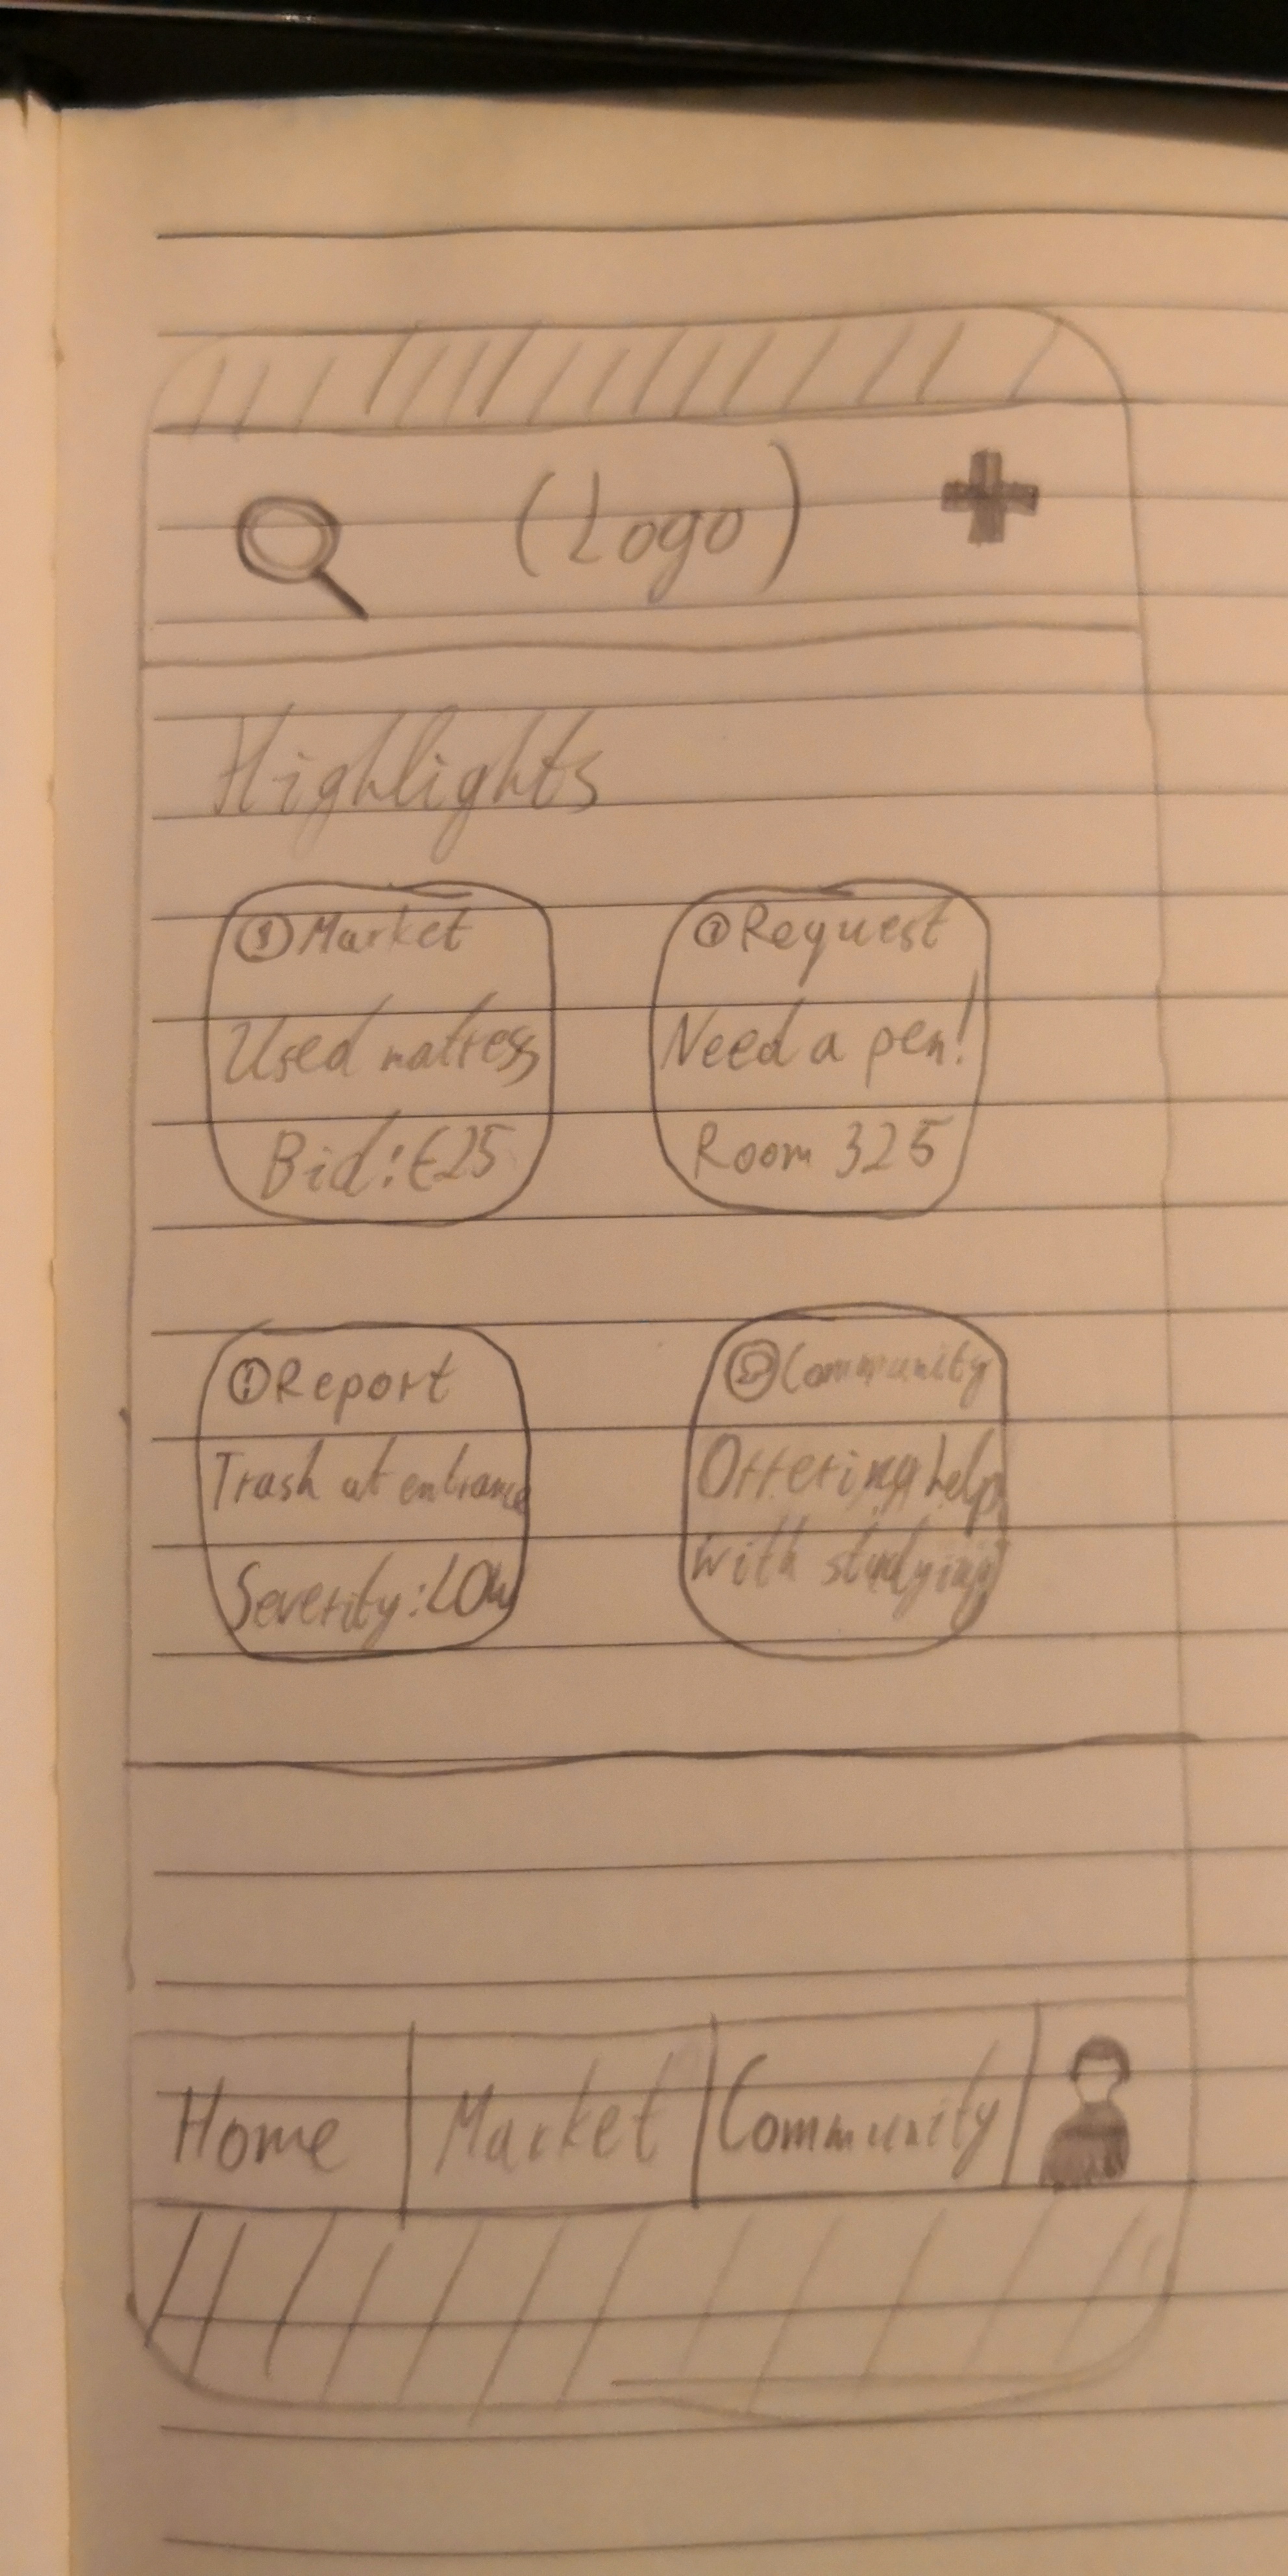 (Logo)
Highlights
Market
Used matress
Bid: €25
Request
Need a pen!
Room 325
Report
Trash at entrance
Severity: LOW
Community
Offering help
with studying
Home Market Community